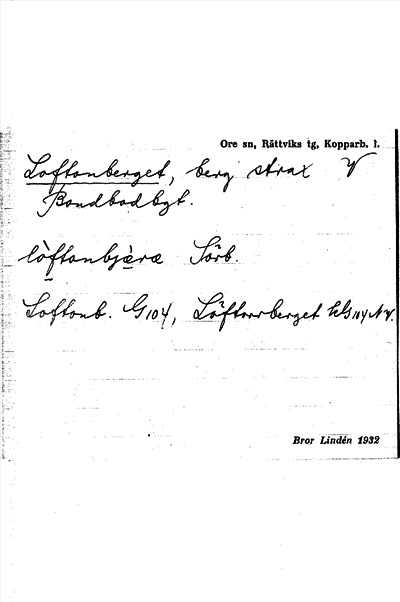 Ore sn, Rättviks tg, Kopparb. l.
Loftonberget, berg strax V
Bondbodbgt.
lòftonbjæ̀ra Sörb.
Loftonb. G104, Löftorrberget EG114NV.
Bror Lindén 1932